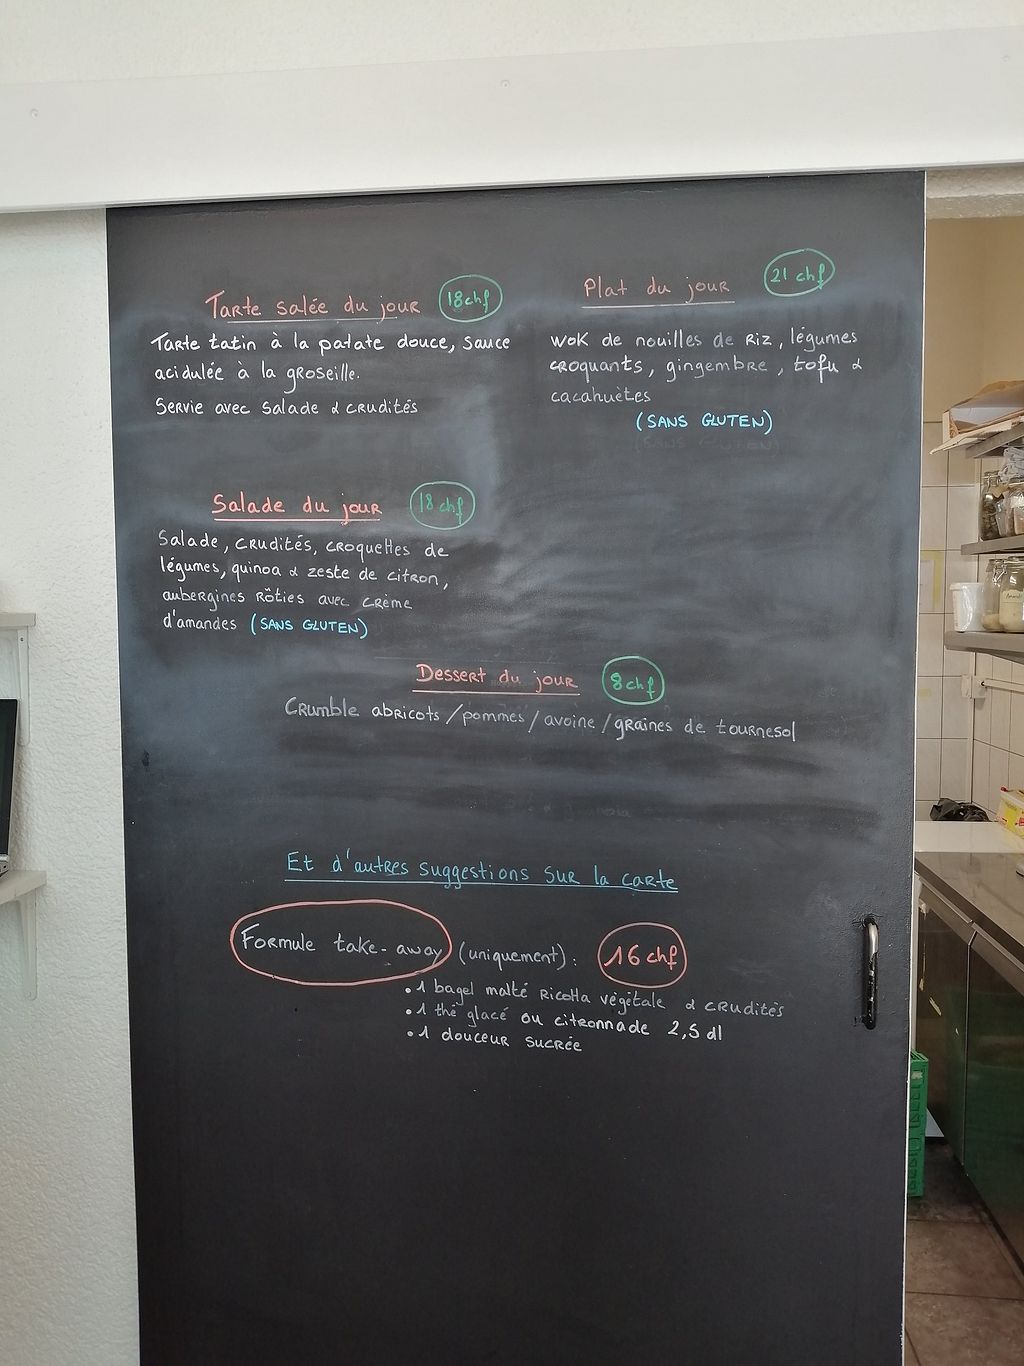 Tarte salée du jour 18chf
Tarte tatin à la patate douce, sauce
acidulée à la groseille.
Servie avec salade & crudités
Plat du jour 21 chf
Wok de nouilles de Riz, légumes
croquants, gingembre, tofu &
cacahuètes
(SANS GLUTEN)
Salade du jour 18 chf
Salade, crudités, croquettes de
légumes, quinoa & zeste de citron,
aubergines rôties avec crème
d'amandes (SANS GLUTEN)
Dessert du jour 8chf
Crumble abricots/pommes/avoine/graines de tournesol
Et d'autres suggestions sur la carte
Formule take-away (uniquement): 16 chf
• 1 bagel malté Ricotta végétale & crudités
• 1 thé glacé ou citronnade 2,5 dl
• 1 douceur sucrée